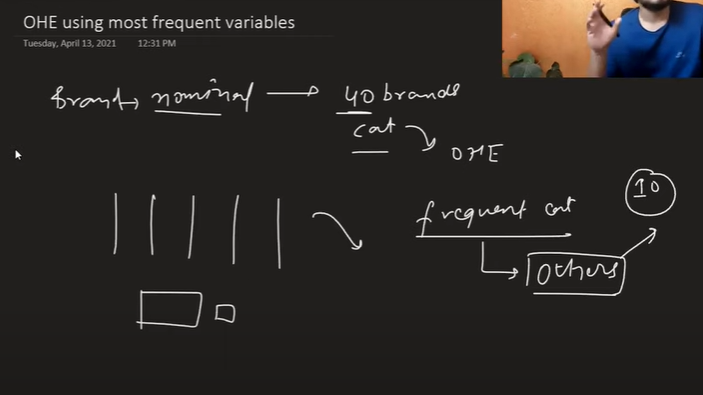 OHE using most frequent variables
Tuesday, April 13, 2021 12:31 PM
Brand → nominal → 40 brands
cat
OHE
10
frequent cat
Others